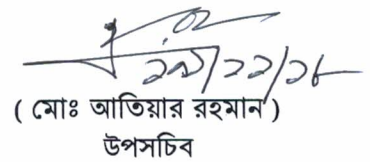 ২৯/১১/১৮
( মোঃ আতিয়ার রহমান )
উপসচিব